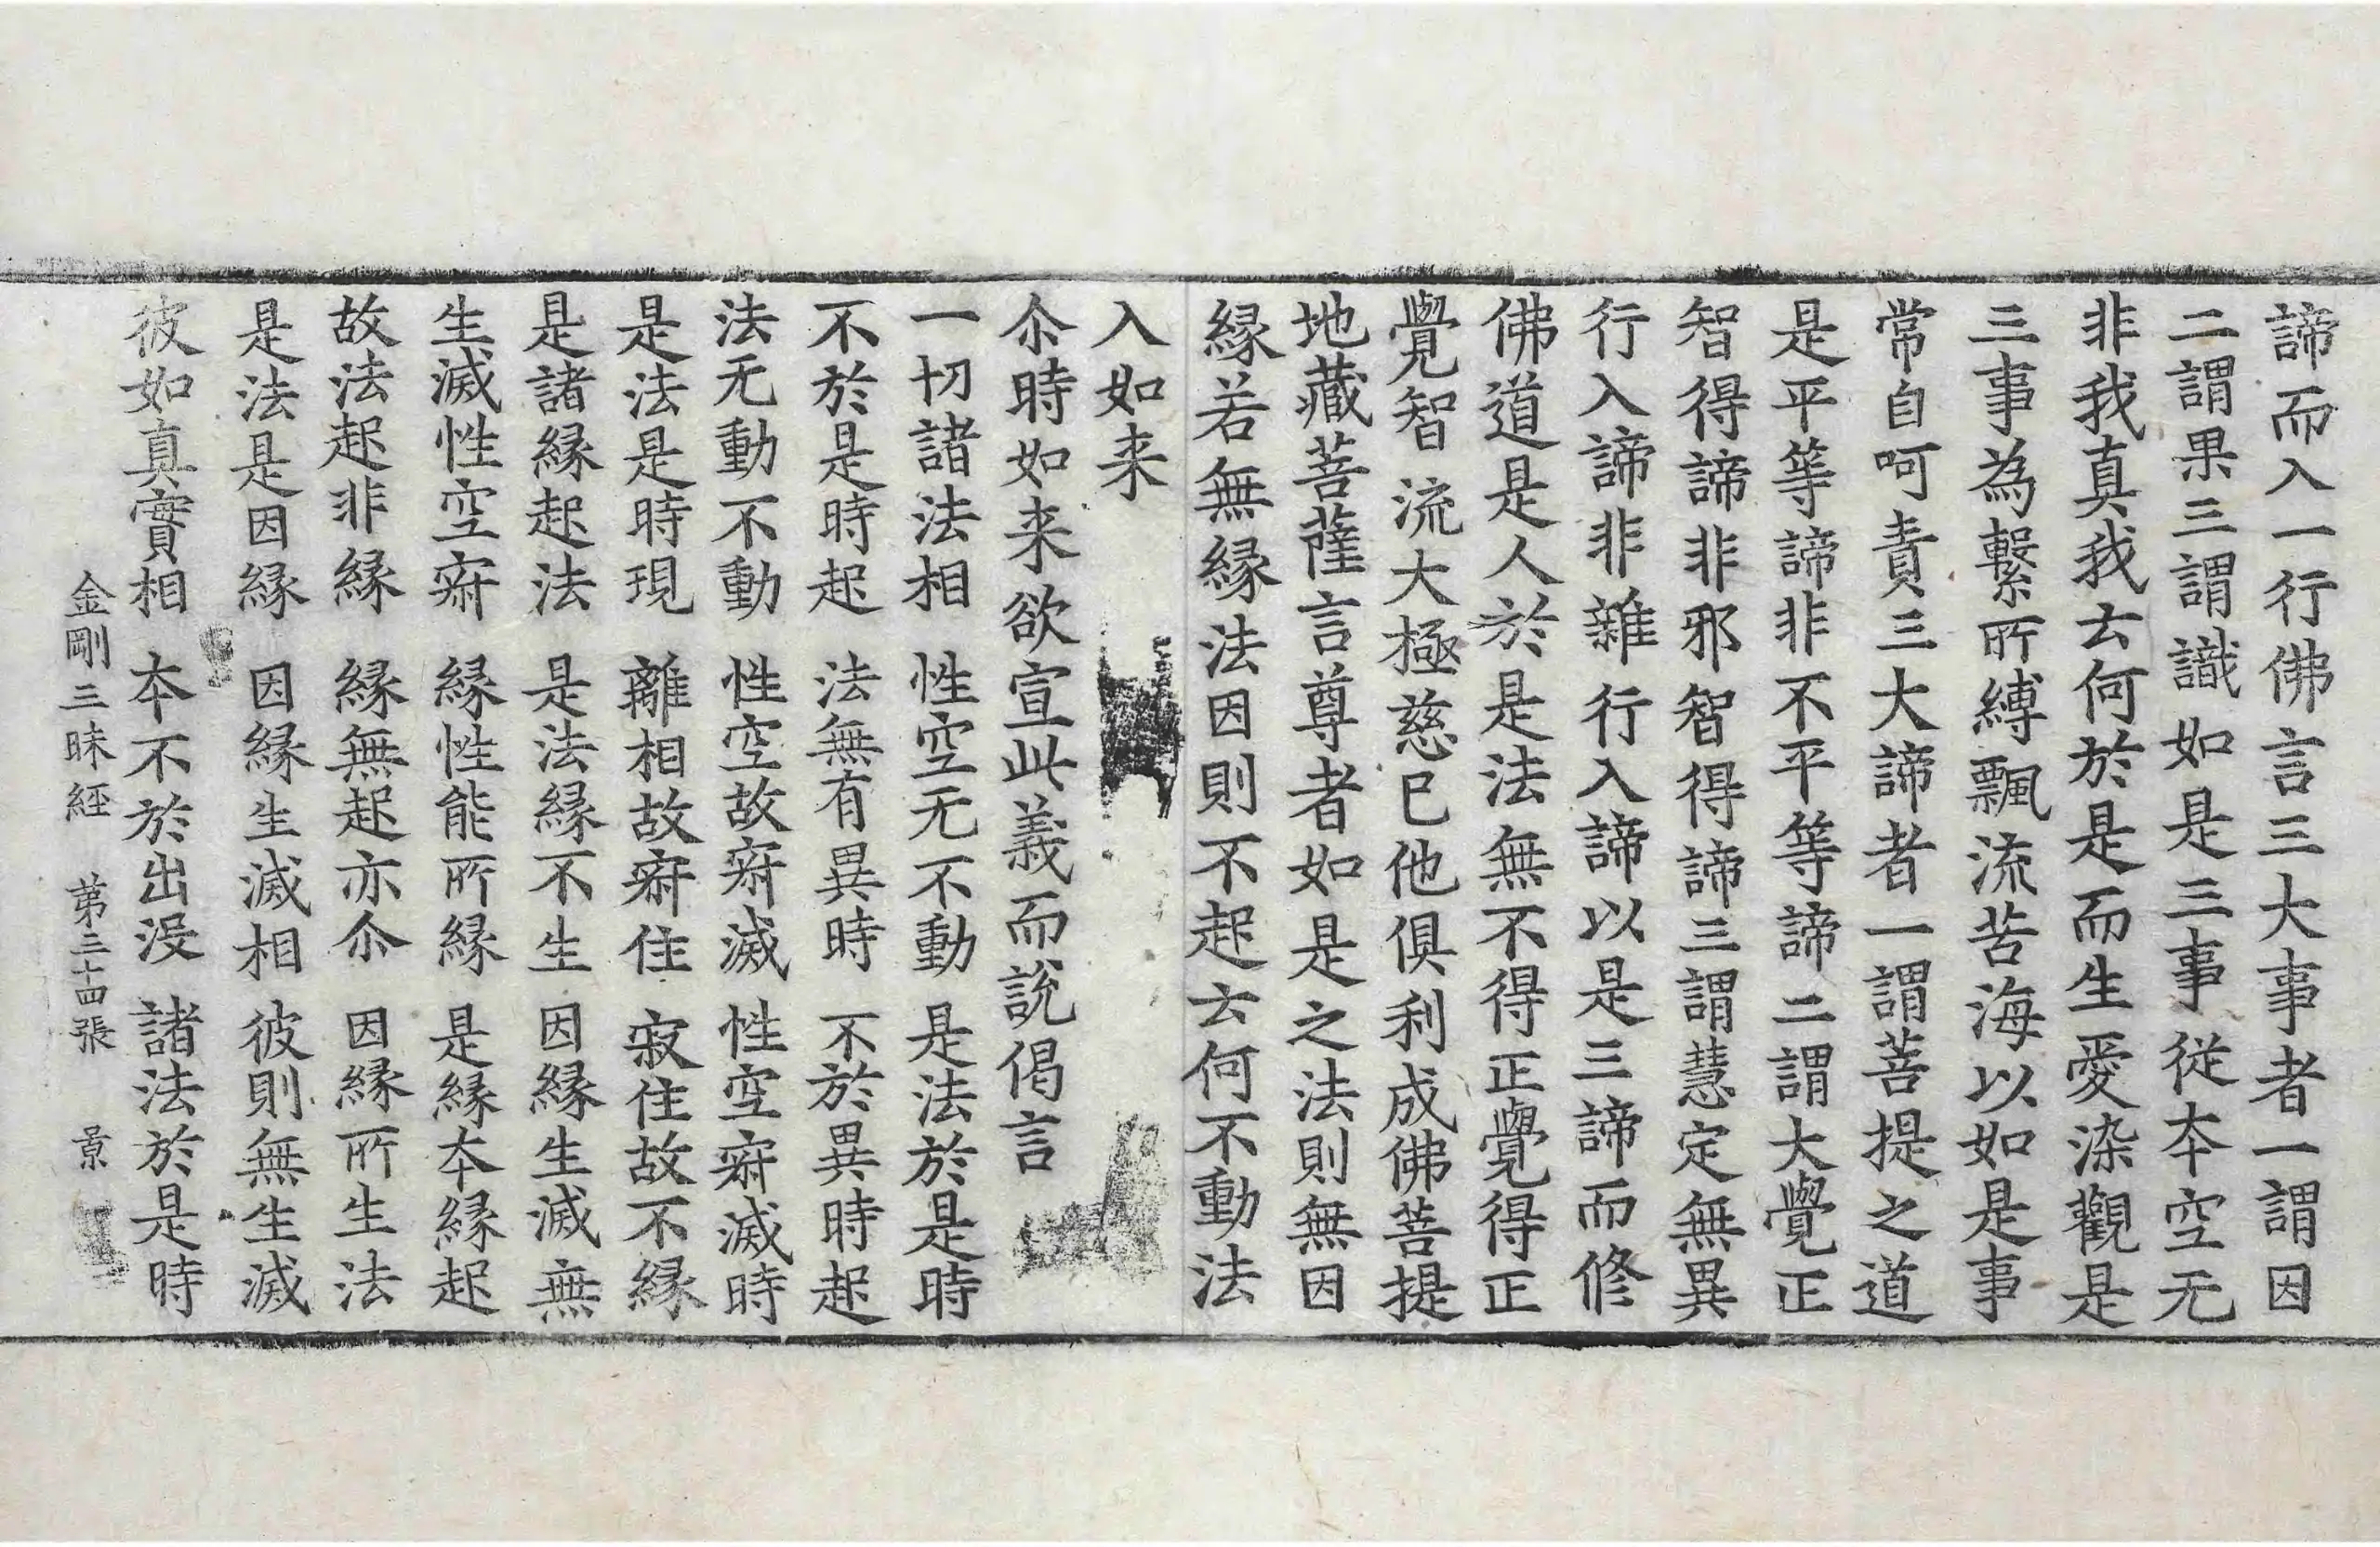 諦而入一行佛言三大事者一謂因
二謂果三謂識如是三事從夲空无
非我真我云何於是而生愛染觀是
三事為繫所縛飄流苦海以如是事
常自呵責三大諦者一謂菩提之道
是平等諦非不平等諦二謂大覺正
智得諦非邪智得諦三謂慧定無異
行入諦非雜行入諦以是三諦而修
佛道是人於是法無不得正覺得正
覺智流大極慈巳他俱利成佛菩提
地藏菩薩言尊者如是之法則無因
縁若無縁法因則不起云何不動法
入如来
尒時如来欲宣此義而說偈言
一切諸法相 性空无不動 是法於是時
不於是時起 法無有異時 不於異時起
法无動不動 性空故㝛滅 性空㝛滅時
是法是時現 離相故㝛住 寂住故不縁
是諸縁起法 是法縁不生 因縁生滅無
生滅性空㝛 縁性能所縁 是縁夲縁起
故法起非縁 縁無起亦尒 因縁所生法
是法是因縁 因縁生滅相 彼則無生滅
彼如真實相 夲不於出没 諸法於是時
金剛三昧經 第三十四張 景